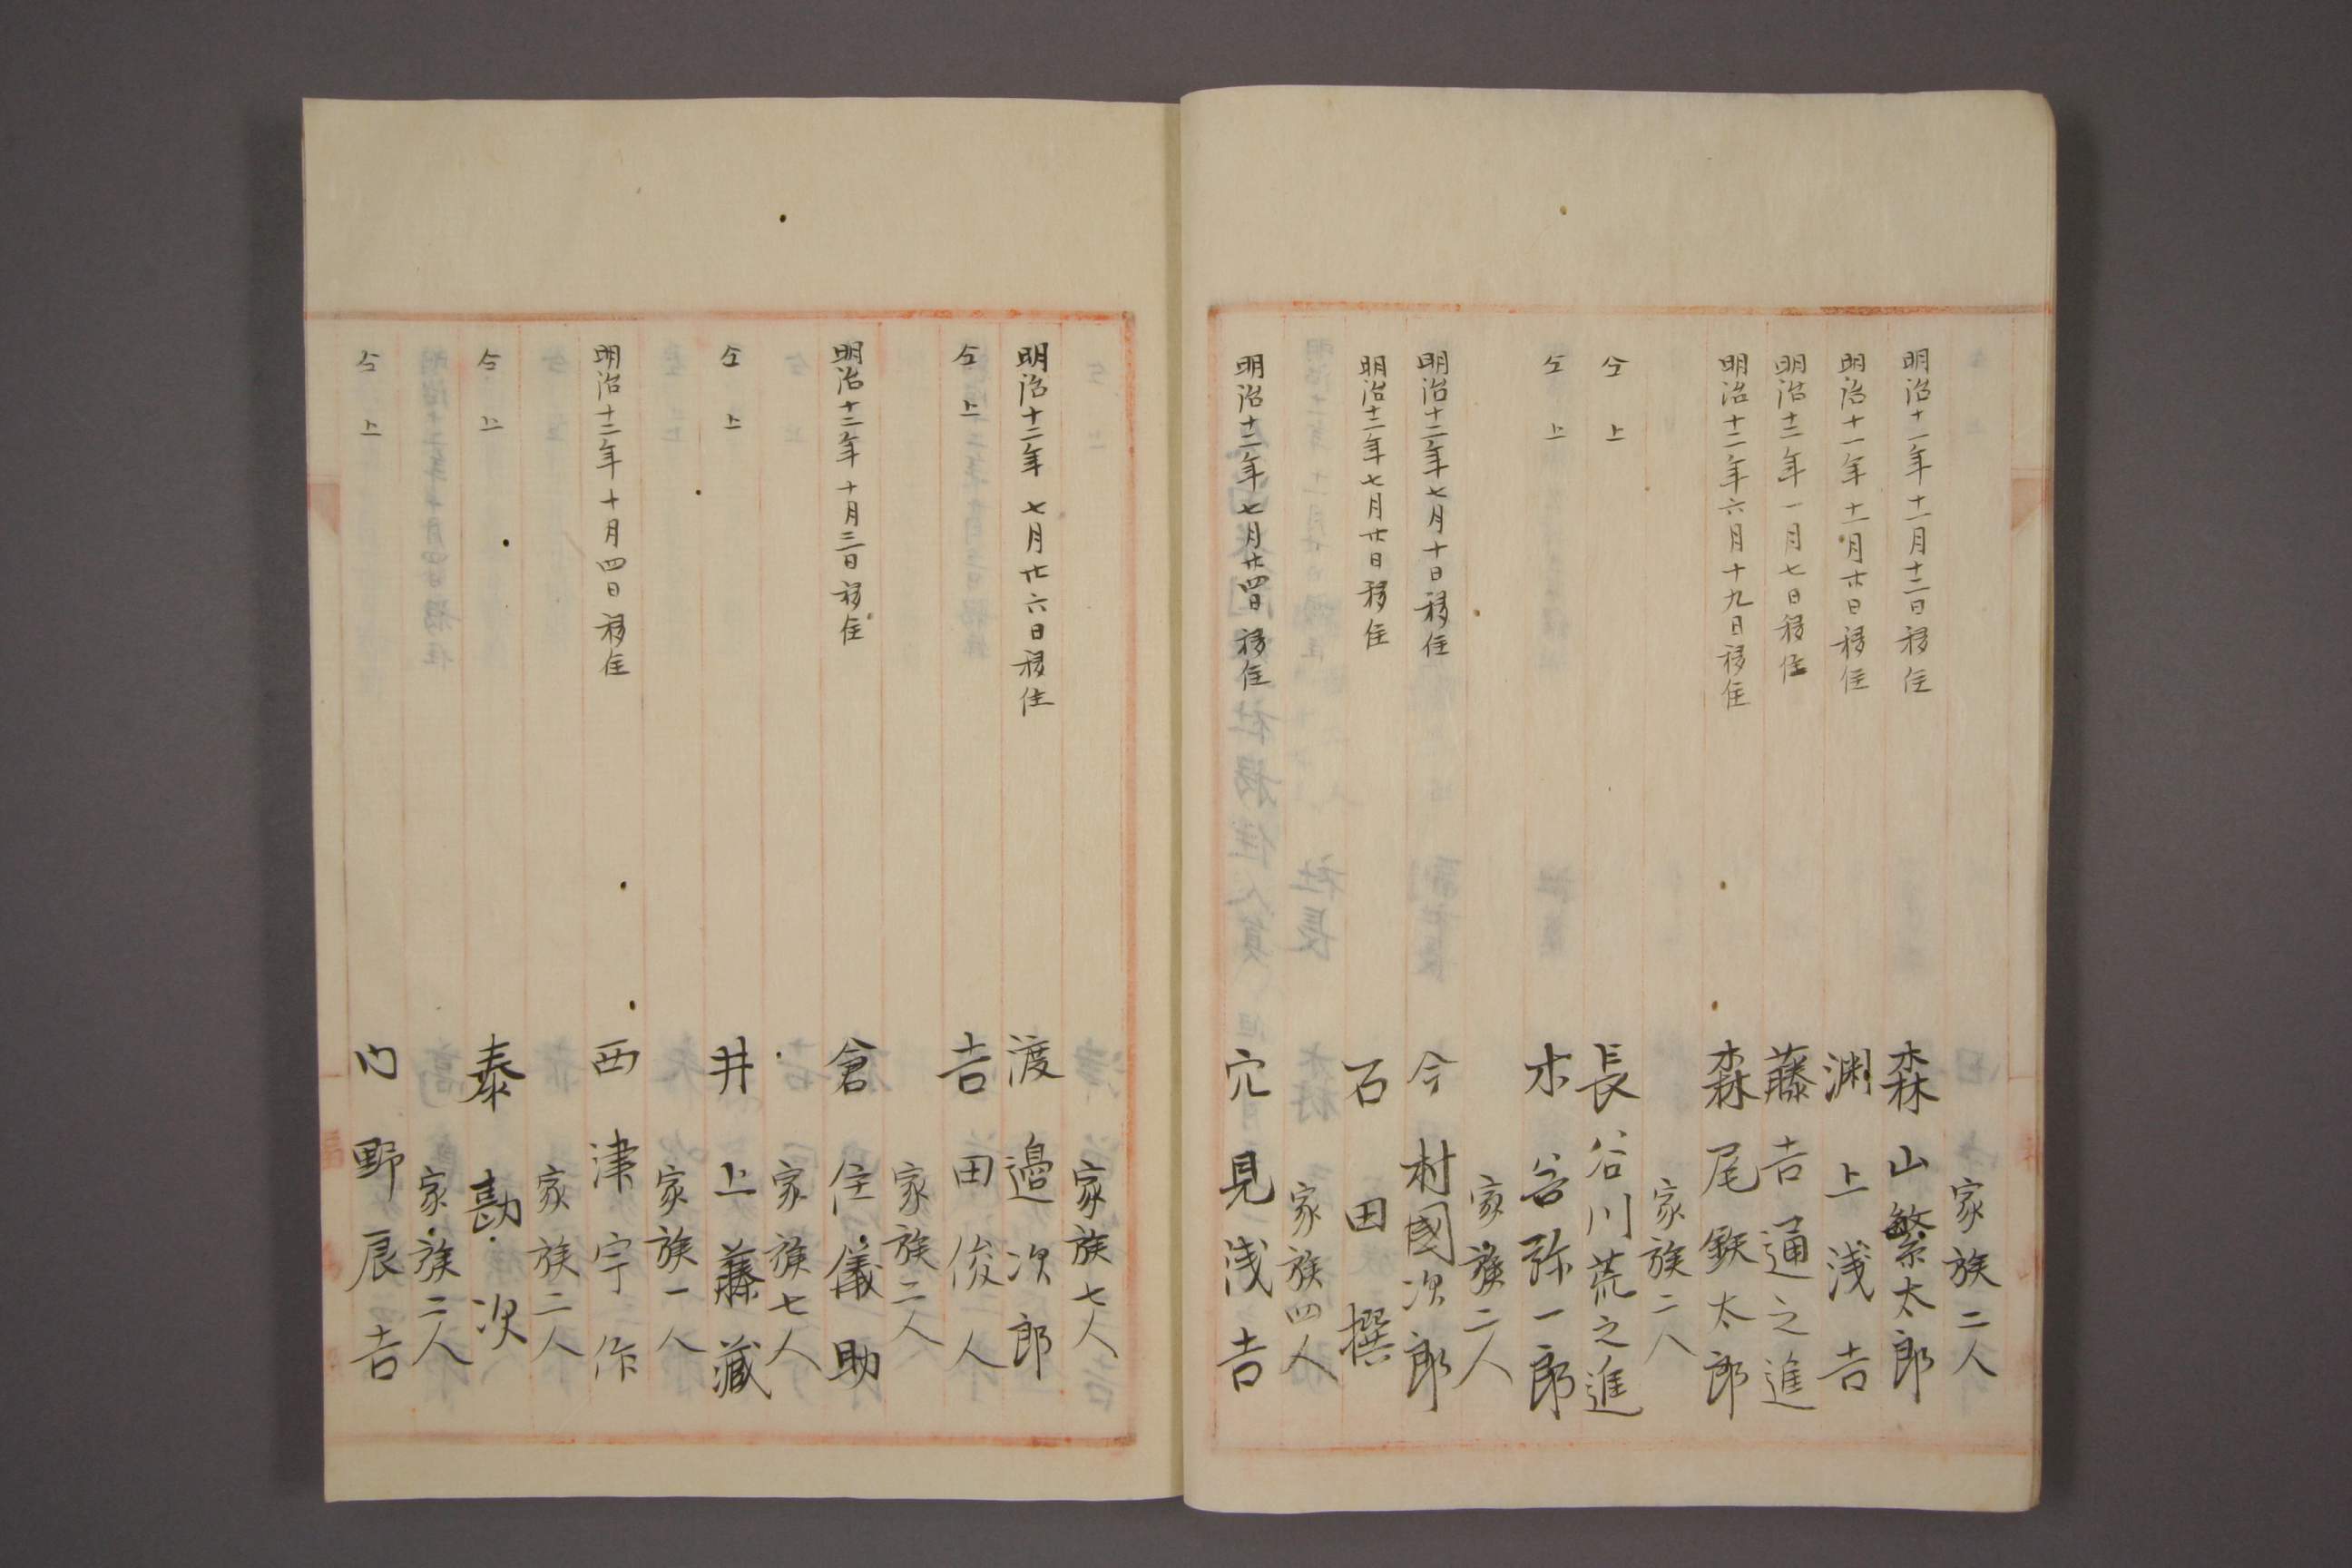 家族二人
明治十一年十一月十二日移住 森山繁太郎
明治十一年十一月廿日移住 渕上浅吉
明治十二年一月七日移住 藤吉通之進
明治十二年六月十九日移住 森尾鉄太郎
家族二人
仝上 長谷川荒之進
仝上 木谷弥一郎
家族二人
明治十二年七月十日移住 今村國次郎
明治十二年七月廿日移住 石田撰
家族四人
明治十二年七月廿四日移住 穴見浅吉
家族七人
明治十二年七月廿六日移住 渡邉次郎
仝上 吉田俊人
家族二人
明治十二年十月三日移住 倉住儀助
家族七人
仝上 井上藤藏
家族一人
明治十二年十月四日移住 西津宇作
家族二人
仝上 泰勘次
家族二人
仝上 内野辰吉